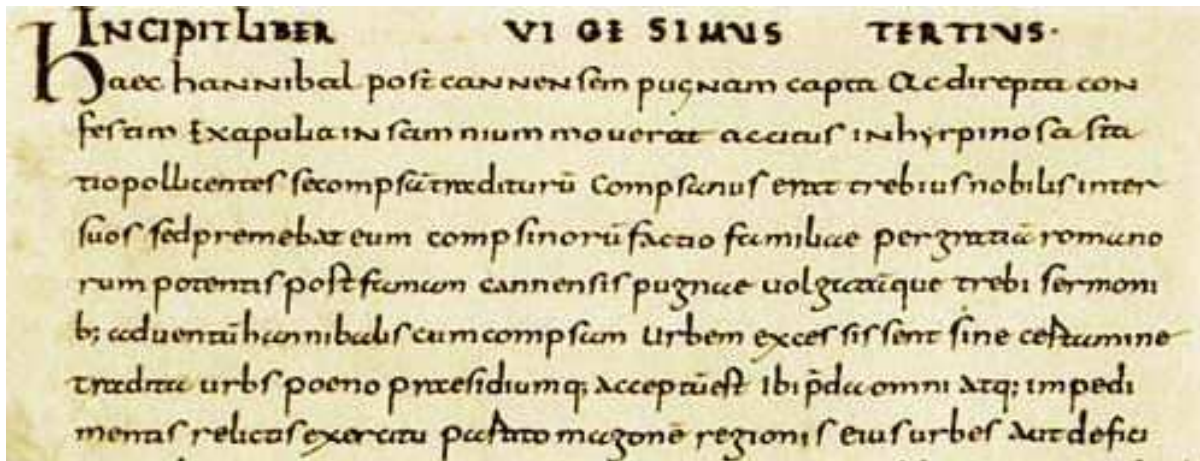 INCIPIT LIBER VIGESIMUS TERTIVS·
Haec hannibal post cannensem pugnam capta ac direpta con
festim ex apulia in samnium mouerat accitus in hyrpinos a sta
tio pollicentes se compsā traditurū compsanus erat trebius nobilis inter
suos sed premebat eum compsinorū factio familiae per gratiā romano
rum potentis post famam cannensis pugnae uolgatāque trebi sermoni
b; aduentū hannibalis cum compsam urbem excessissent sine certamine
tradita urbs poeno praesidiumq; acceptū est ibi p̄da omni atq; impedi
mentis relictis exercitu partito magonē regionis eius urbes aut defici